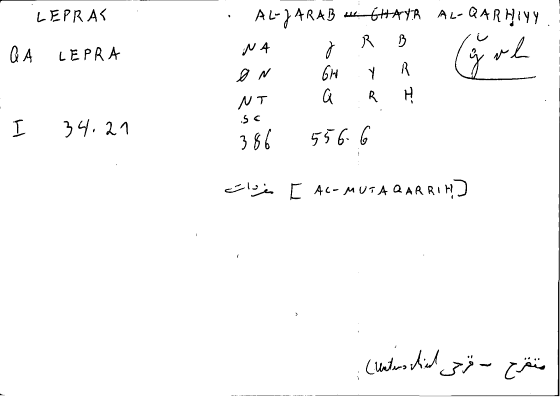 LEPRAS
QA LEPRA
I 34.21
AL-JARAB GHAYR AL-QARHIYY
NA J R B
ØN GH Y R
NT Q R Ḥ
SC
386 556.6
مفردات [AL-MUTAQARRIḤ]
متقرح – قرحى